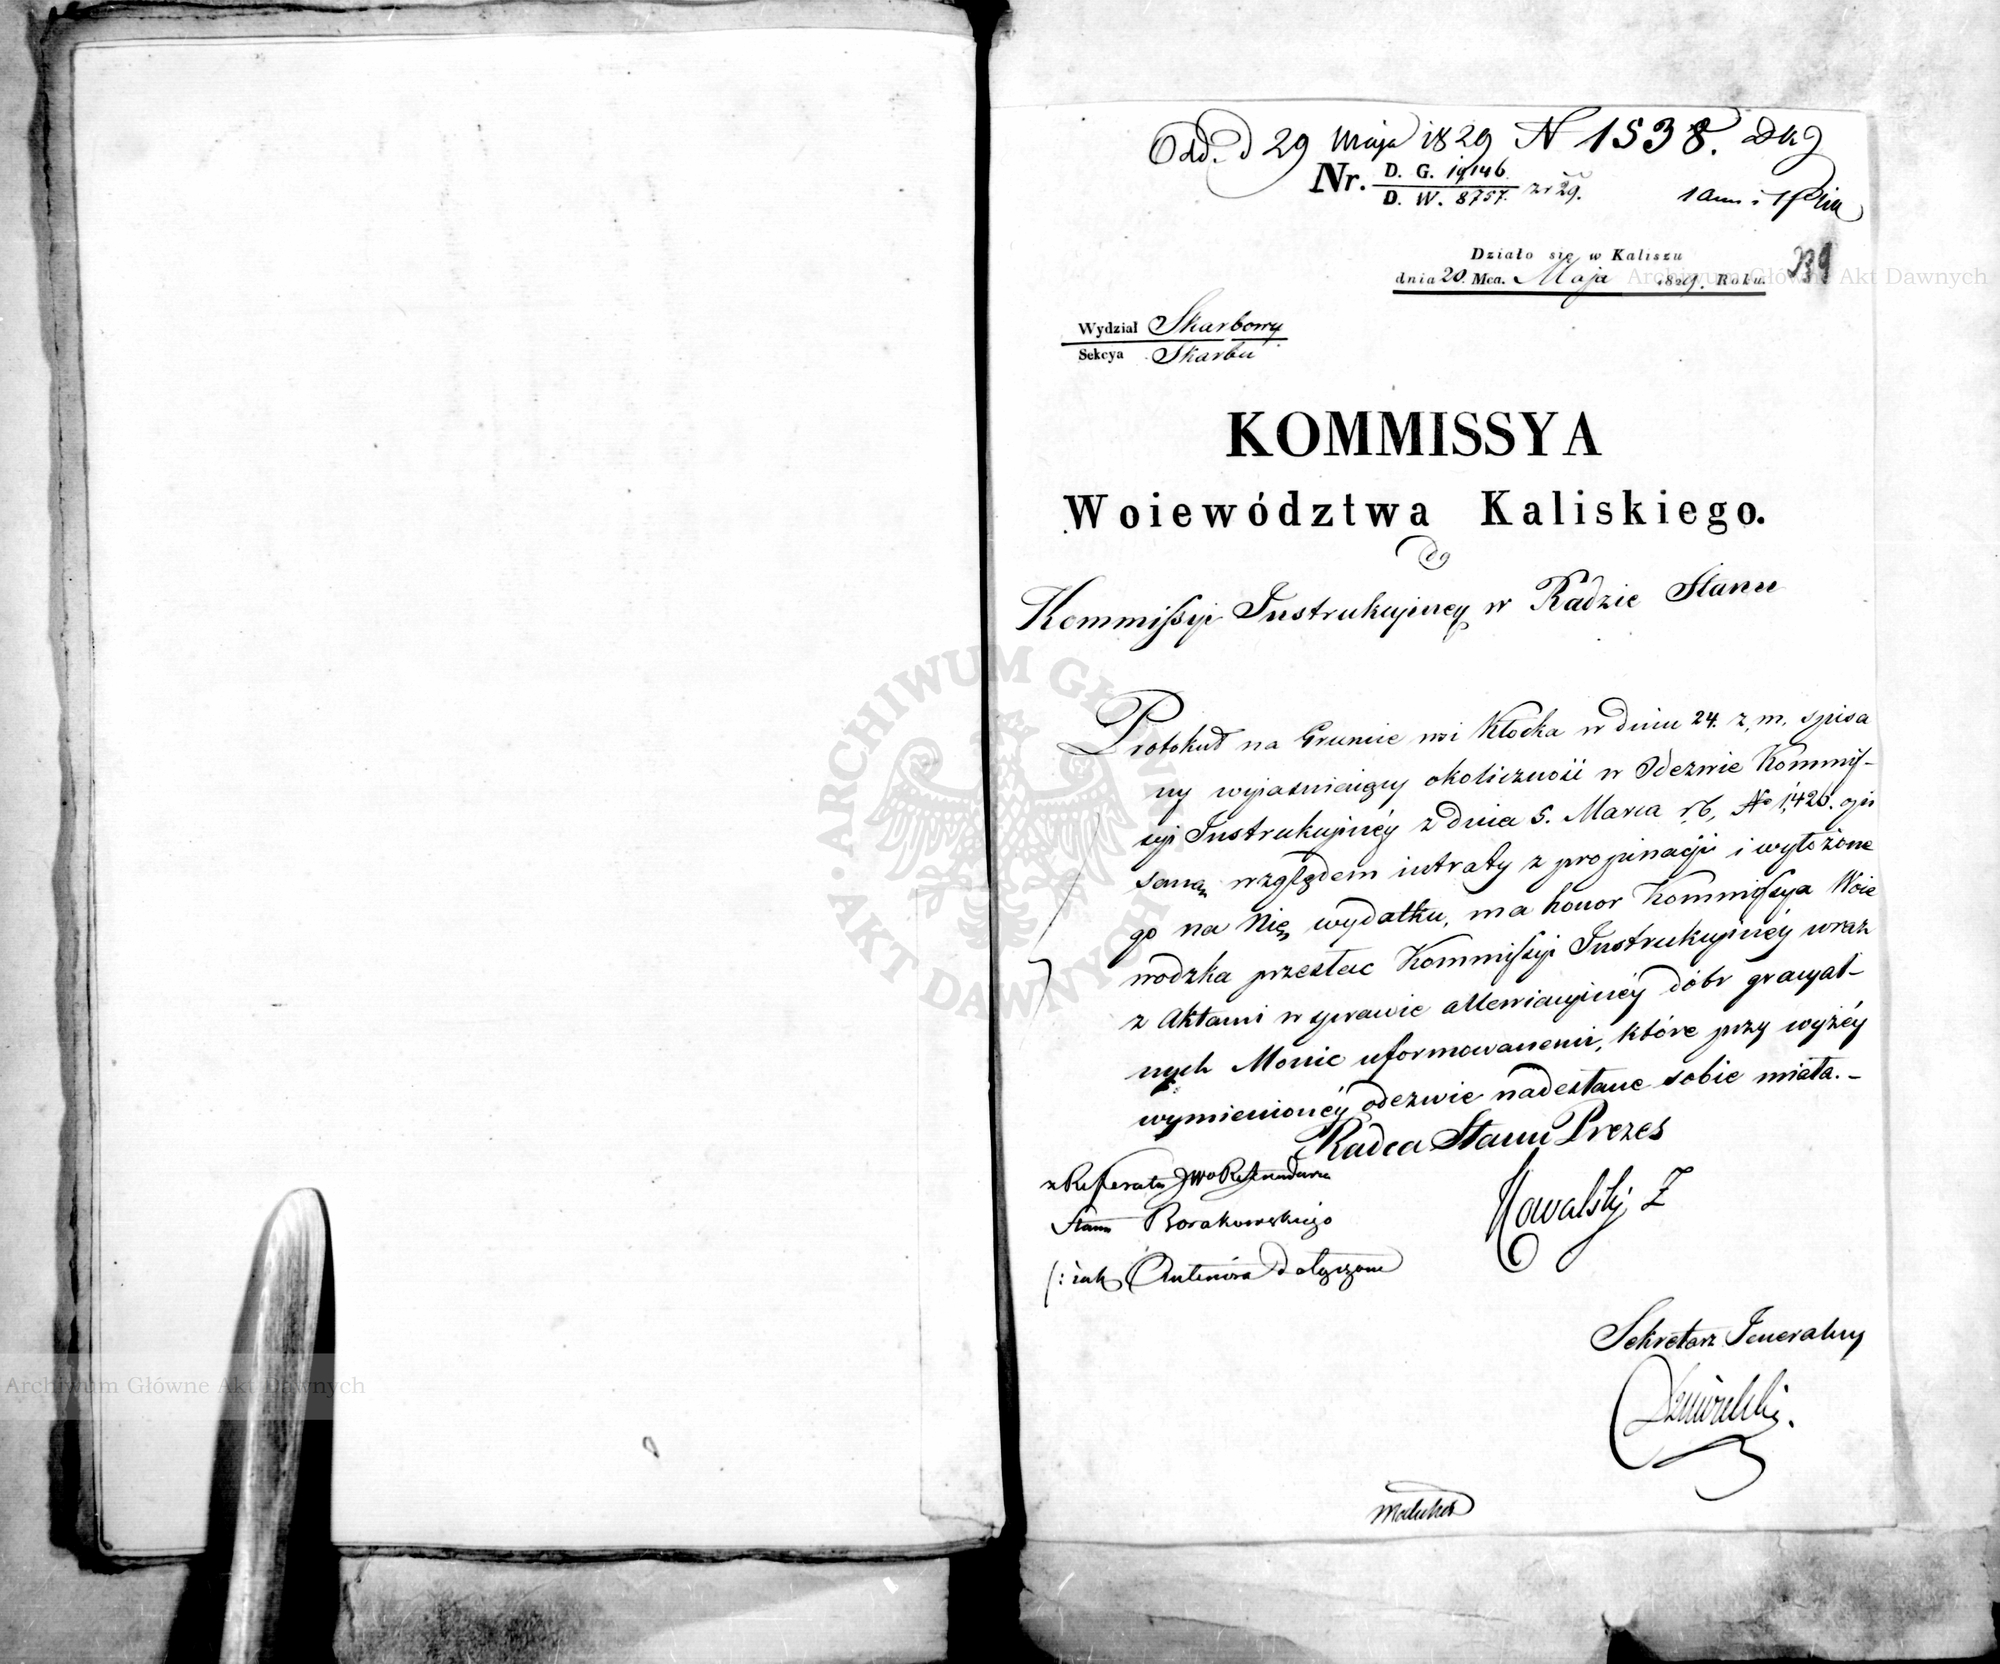 Odd. d 29 Maja 1829 N 1538.
Nr. D. G. 19146.
D. W. 8757. z r 29.
1 Ann i 1
Działo się w Kaliszu
dnia 20. Mca. Maja 1829. Roku.
239
Wydział Skarbowy
Sekcya Skarbu
KOMMISSYA
Woiewództwa Kaliskiego.
do
Kommissyi Instrukcyiney w Radzie Stanu
Protokuł na Gruncie wsi Kłocka w dniu 24. z. m. spisa
ny wyiaśniaiący okoliczność w Odezwie Kommis-
syi Instrukcyinéy z dnia 5. Marca r b, No 1,426. opi
saną względem intraty z propinacji i wyłożone
go na Nię wydatku, ma honor Kommissya Woie
wodzka przesłac Kommissyi Instrukcyinéy wraz
z Aktami w sprawie allewiacyinéy dóbr gracyal-
nych Monic uformowanemi, które przy wyżéy
wymienionéy odezwie nadesłane sobie miała. -
Radca Stanu Prezes
z Referatu JWo Referendarza
Stanu Borakowskiego
Kowalski Z
Sekretarz Jeneralny
ARCHIWUM GŁÓWNE AKT DAWNYCH
Archiwum Główne Akt Dawnych
Archiwum Główne Akt Dawnych